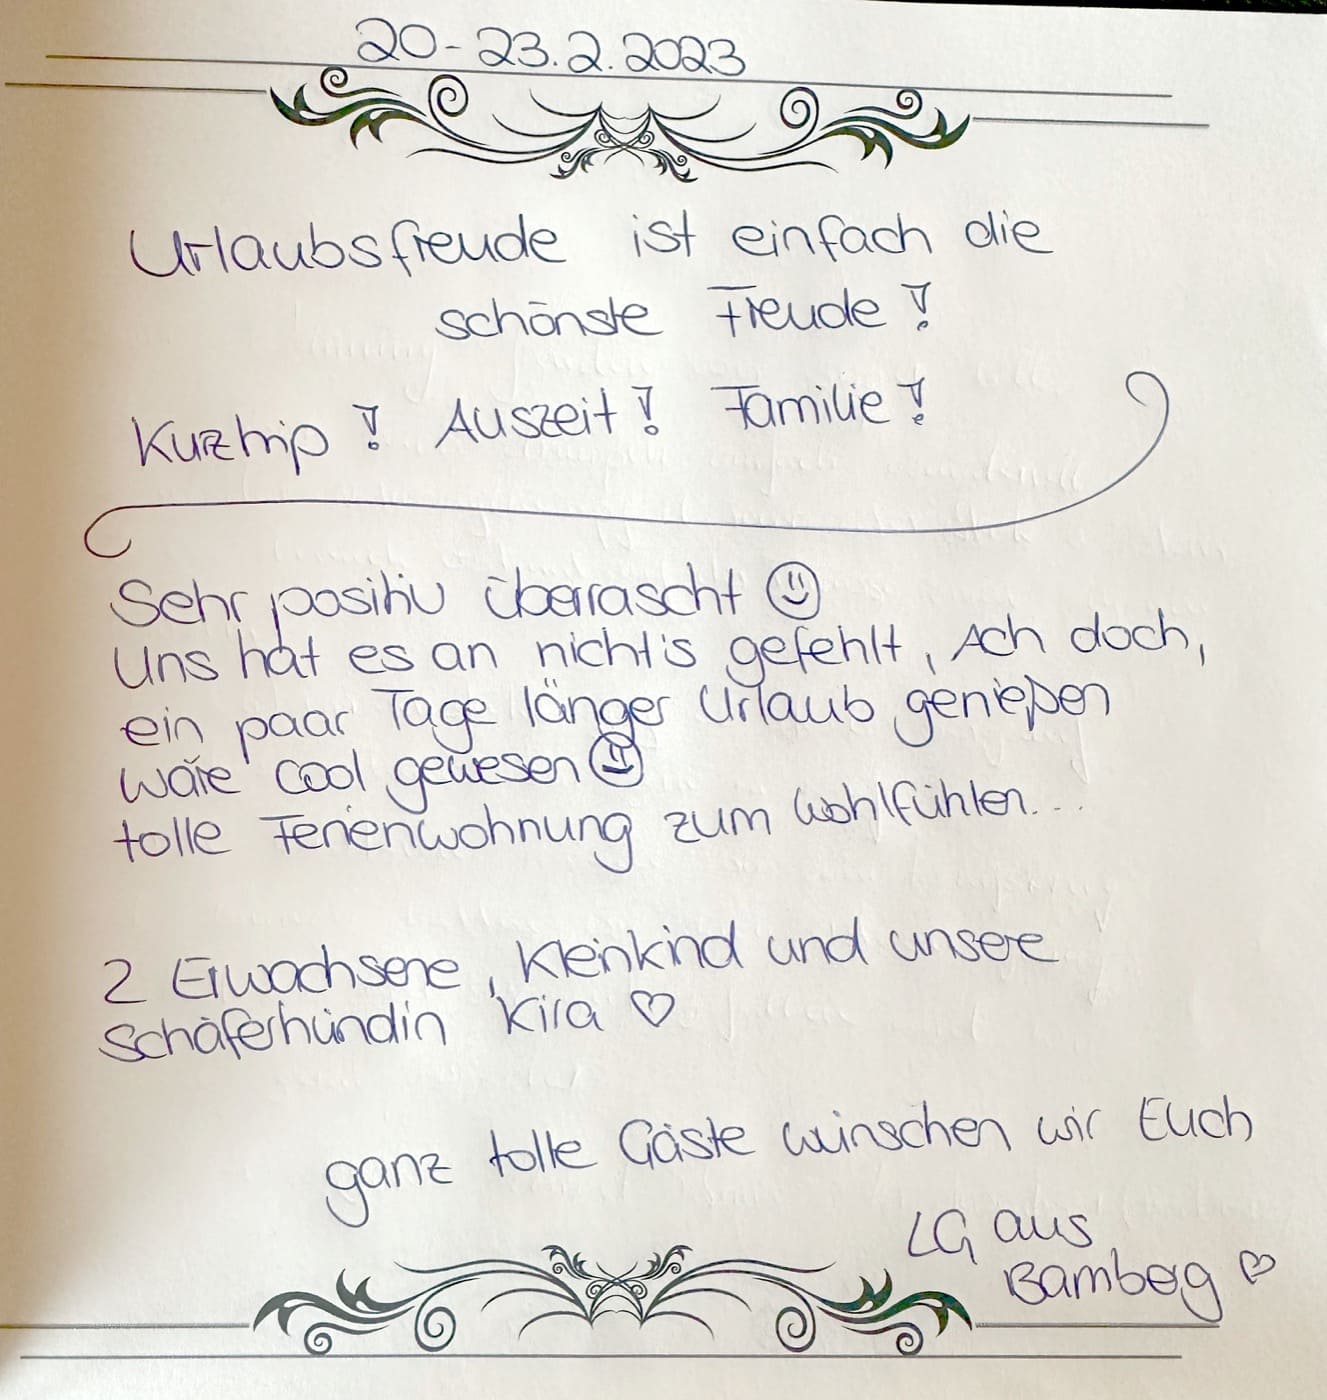 20-23.2.2023
Urlaubsfreude ist einfach die
schönste Freude!
Kurztrip! Auszeit! Familie!
Sehr positiv überrascht ☺
Uns hat es an nichts gefehlt, Ach doch,
ein paar Tage länger Urlaub genießen
wäre cool gewesen ☺
tolle Ferienwohnung zum wohlfühlen...
2 Erwachsene, Kleinkind und unsere
Schäferhündin Kira ♡
ganz tolle Gäste wünschen wir Euch
LG aus
Bamberg ♡